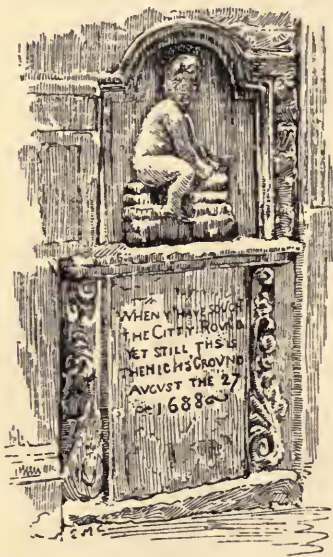 WHEN Y HAVE SOVGH
THE CITTY ROVND
YET STILL THS IS
THE HIGHS GROVND
AVGVST THE 27
1688
EMC